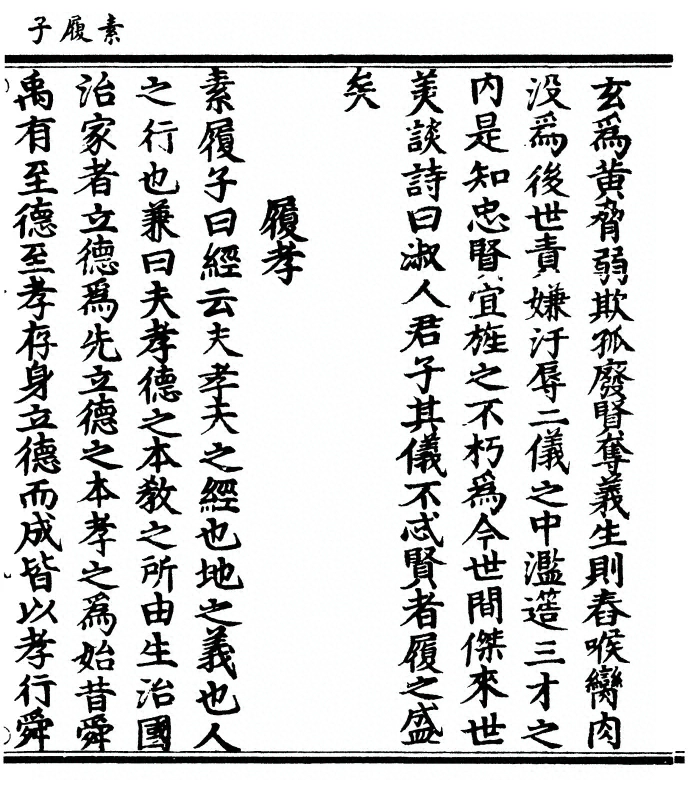 素履子
玄為黃脅弱欺孤廢賢奪義生則舂喉臠肉
没為後世責嫌汙辱二儀之中濫簉三才之
内是知忠賢宜旌之不朽為今世間傑來世
美談詩曰淑人君子其儀不忒賢者履之盛
矣
履孝
素履子曰經云夫孝天之經也地之義也人
之行也兼曰夫孝德之本教之所由生治國
治家者立德為先立德之本孝之為始昔舜
禹有至德至孝存身立德而成皆以孝行舜